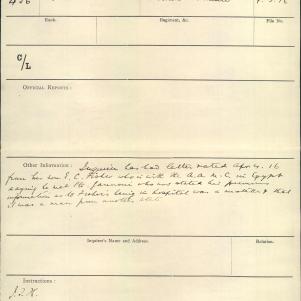 Rank.
Regiment, &c.
File No.
C/L
OFFICIAL REPORTS :
Other Information : Inquirer has had letter dated Apr. 4. 16
from her son E. C. Fisher who is with the A.A.M.C. in Egypt
saying he met Pte who stated his previous
information as to Fisher's being in hospital was a mistake & that
it was a man from another
Inquirer's Name and Address.
Relation.
Instructions :